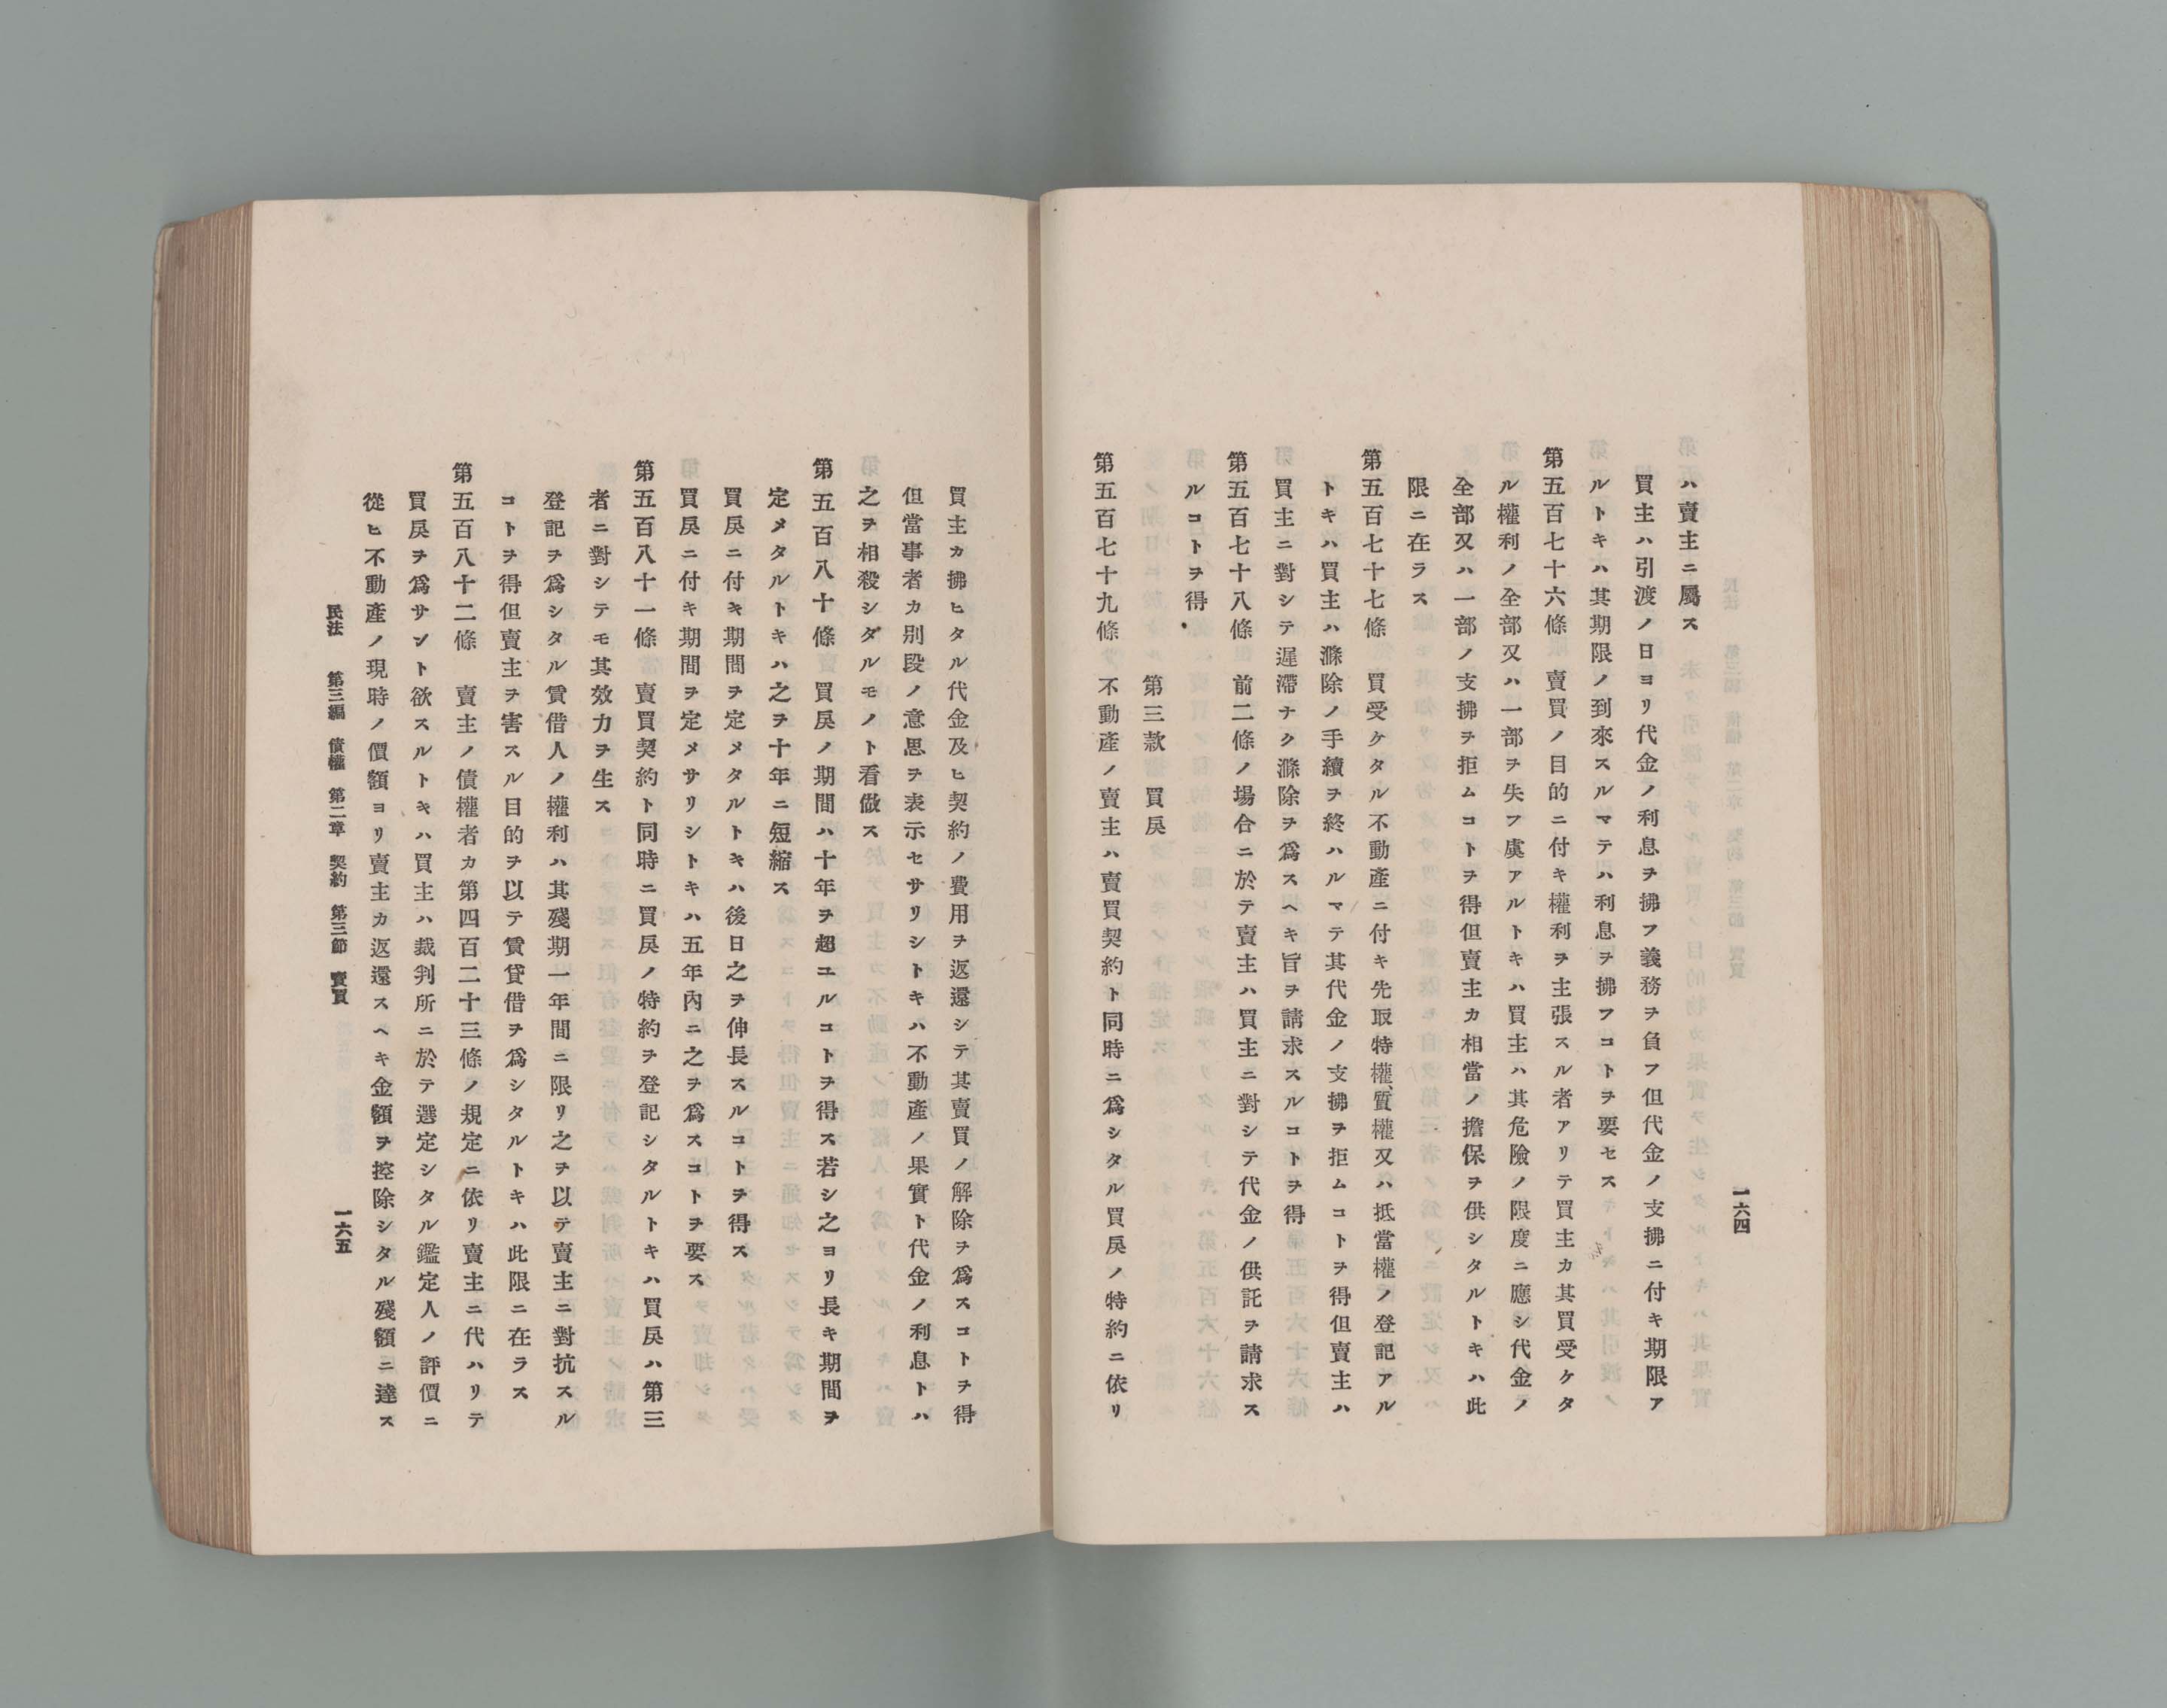 一六四
ハ賣主ニ屬ス
買主ハ引渡ノ日ヨリ代金ノ利息ヲ拂フ義務ヲ負フ但代金ノ支拂ニ付キ期限ア
ルトキハ其期限ノ到來スルマテハ利息ヲ拂フコトヲ要セス
第五百七十六條　賣買ノ目的ニ付キ權利ヲ主張スル者アリテ買主カ其買受ケタ
ル權利ノ全部又ハ一部ヲ失フ虞アルトキハ買主ハ其危險ノ限度ニ應シ代金ノ
全部又ハ一部ノ支拂ヲ拒ムコトヲ得但賣主カ相當ノ擔保ヲ供シタルトキハ此
限ニ在ラス
第五百七十七條　買受ケタル不動產ニ付キ先取特權、質權又ハ抵當權ノ登記アル
トキハ買主ハ滌除ノ手續ヲ終ハルマテ其代金ノ支拂ヲ拒ムコトヲ得但賣主ハ
買主ニ對シテ遲滯ナク滌除ヲ爲スヘキ旨ヲ請求スルコトヲ得
第五百七十八條　前二條ノ場合ニ於テ賣主ハ買主ニ對シテ代金ノ供託ヲ請求ス
ルコトヲ得
第三款　買戾
第五百七十九條　不動產ノ賣主ハ賣買契約ト同時ニ爲シタル買戾ノ特約ニ依リ
買主カ拂ヒタル代金及ヒ契約ノ費用ヲ返還シテ其賣買ノ解除ヲ爲スコトヲ得
但當事者カ別段ノ意思ヲ表示セサリシトキハ不動產ノ果實ト代金ノ利息トハ
之ヲ相殺シタルモノト看做ス
第五百八十條　買戾ノ期間ハ十年ヲ超ユルコトヲ得ス若シ之ヨリ長キ期間ヲ
定メタルトキハ之ヲ十年ニ短縮ス
買戾ニ付キ期間ヲ定メタルトキハ後日之ヲ伸長スルコトヲ得ス
買戾ニ付キ期間ヲ定メサリシトキハ五年內ニ之ヲ爲スコトヲ要ス
第五百八十一條　賣買契約ト同時ニ買戾ノ特約ヲ登記シタルトキハ買戾ハ第三
者ニ對シテモ其效力ヲ生ス
登記ヲ爲シタル賃借人ノ權利ハ其殘期一年間ニ限リ之ヲ以テ賣主ニ對抗スル
コトヲ得但賣主ヲ害スル目的ヲ以テ賃貸借ヲ爲シタルトキハ此限ニ在ラス
第五百八十二條　賣主ノ債權者カ第四百二十三條ノ規定ニ依リ賣主ニ代ハリテ
買戾ヲ爲サント欲スルトキハ買主ハ裁判所ニ於テ選定シタル鑑定人ノ評價ニ
從ヒ不動產ノ現時ノ價額ヨリ賣主カ返還スヘキ金額ヲ控除シタル殘額ニ達ス
民法　第三編　債權　第二章　契約　第三節　賣買　一六五